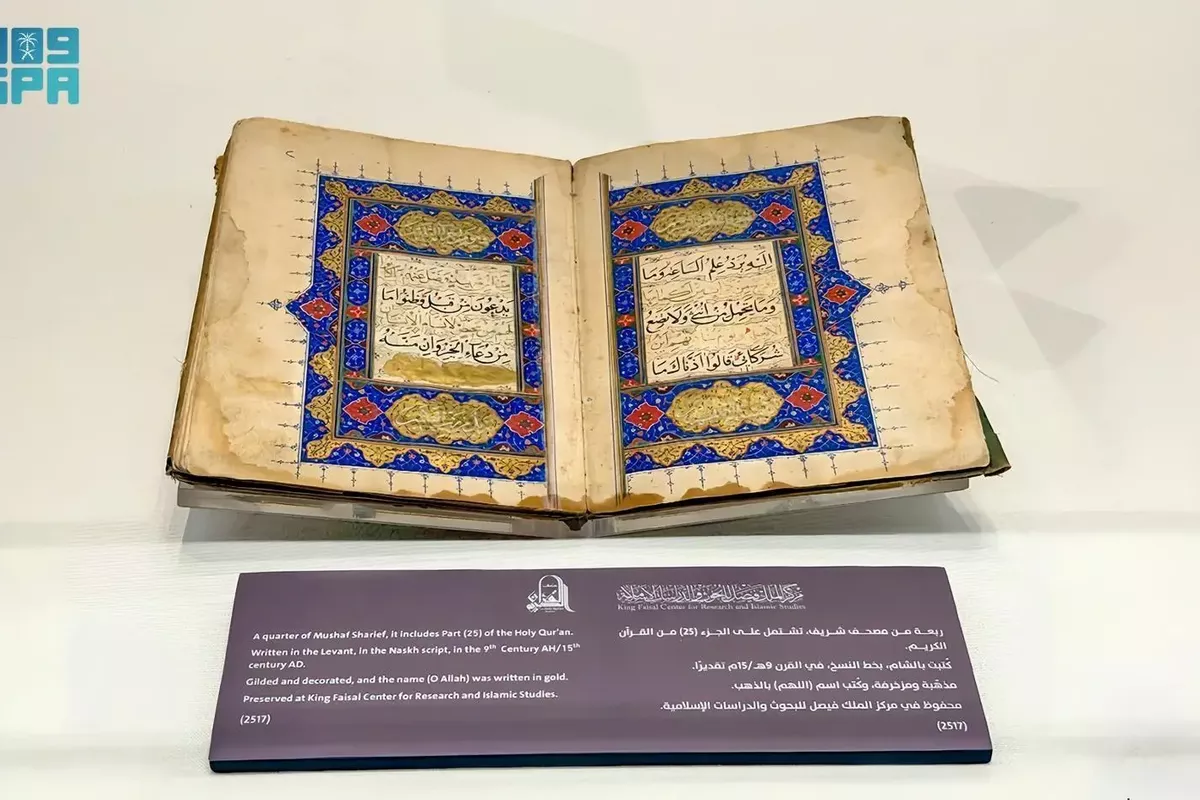 109
SPA
إليه يرد علم الساعة وما
وما تحمل من أنثى ولا تضع
شركائي قالوا آذناك ما
يدعون من قبل وظنوا ما
من دعاء الخير وإن مسه
مركز الملك فيصل للبحوث والدراسات الإسلامية
King Faisal Center for Research and Islamic Studies
A quarter of Mushaf Sharief, it includes Part (25) of the Holy Qur'an.
Written in the Levant, in the Naskh script, in the 9th Century AH/15th
century AD.
Gilded and decorated, and the name (O Allah) was written in gold.
Preserved at King Faisal Center for Research and Islamic Studies.
(2517)
ربعة من مصحف شريف، تشتمل على الجزء (25) من القرآن
الكريم.
كُتبت بالشام، بخط النسخ، في القرن 9هـ/15م تقديرًا.
مذهّبة ومزخرفة، وكُتب اسم (اللهم) بالذهب.
محفوظ في مركز الملك فيصل للبحوث والدراسات الإسلامية.
(2517)